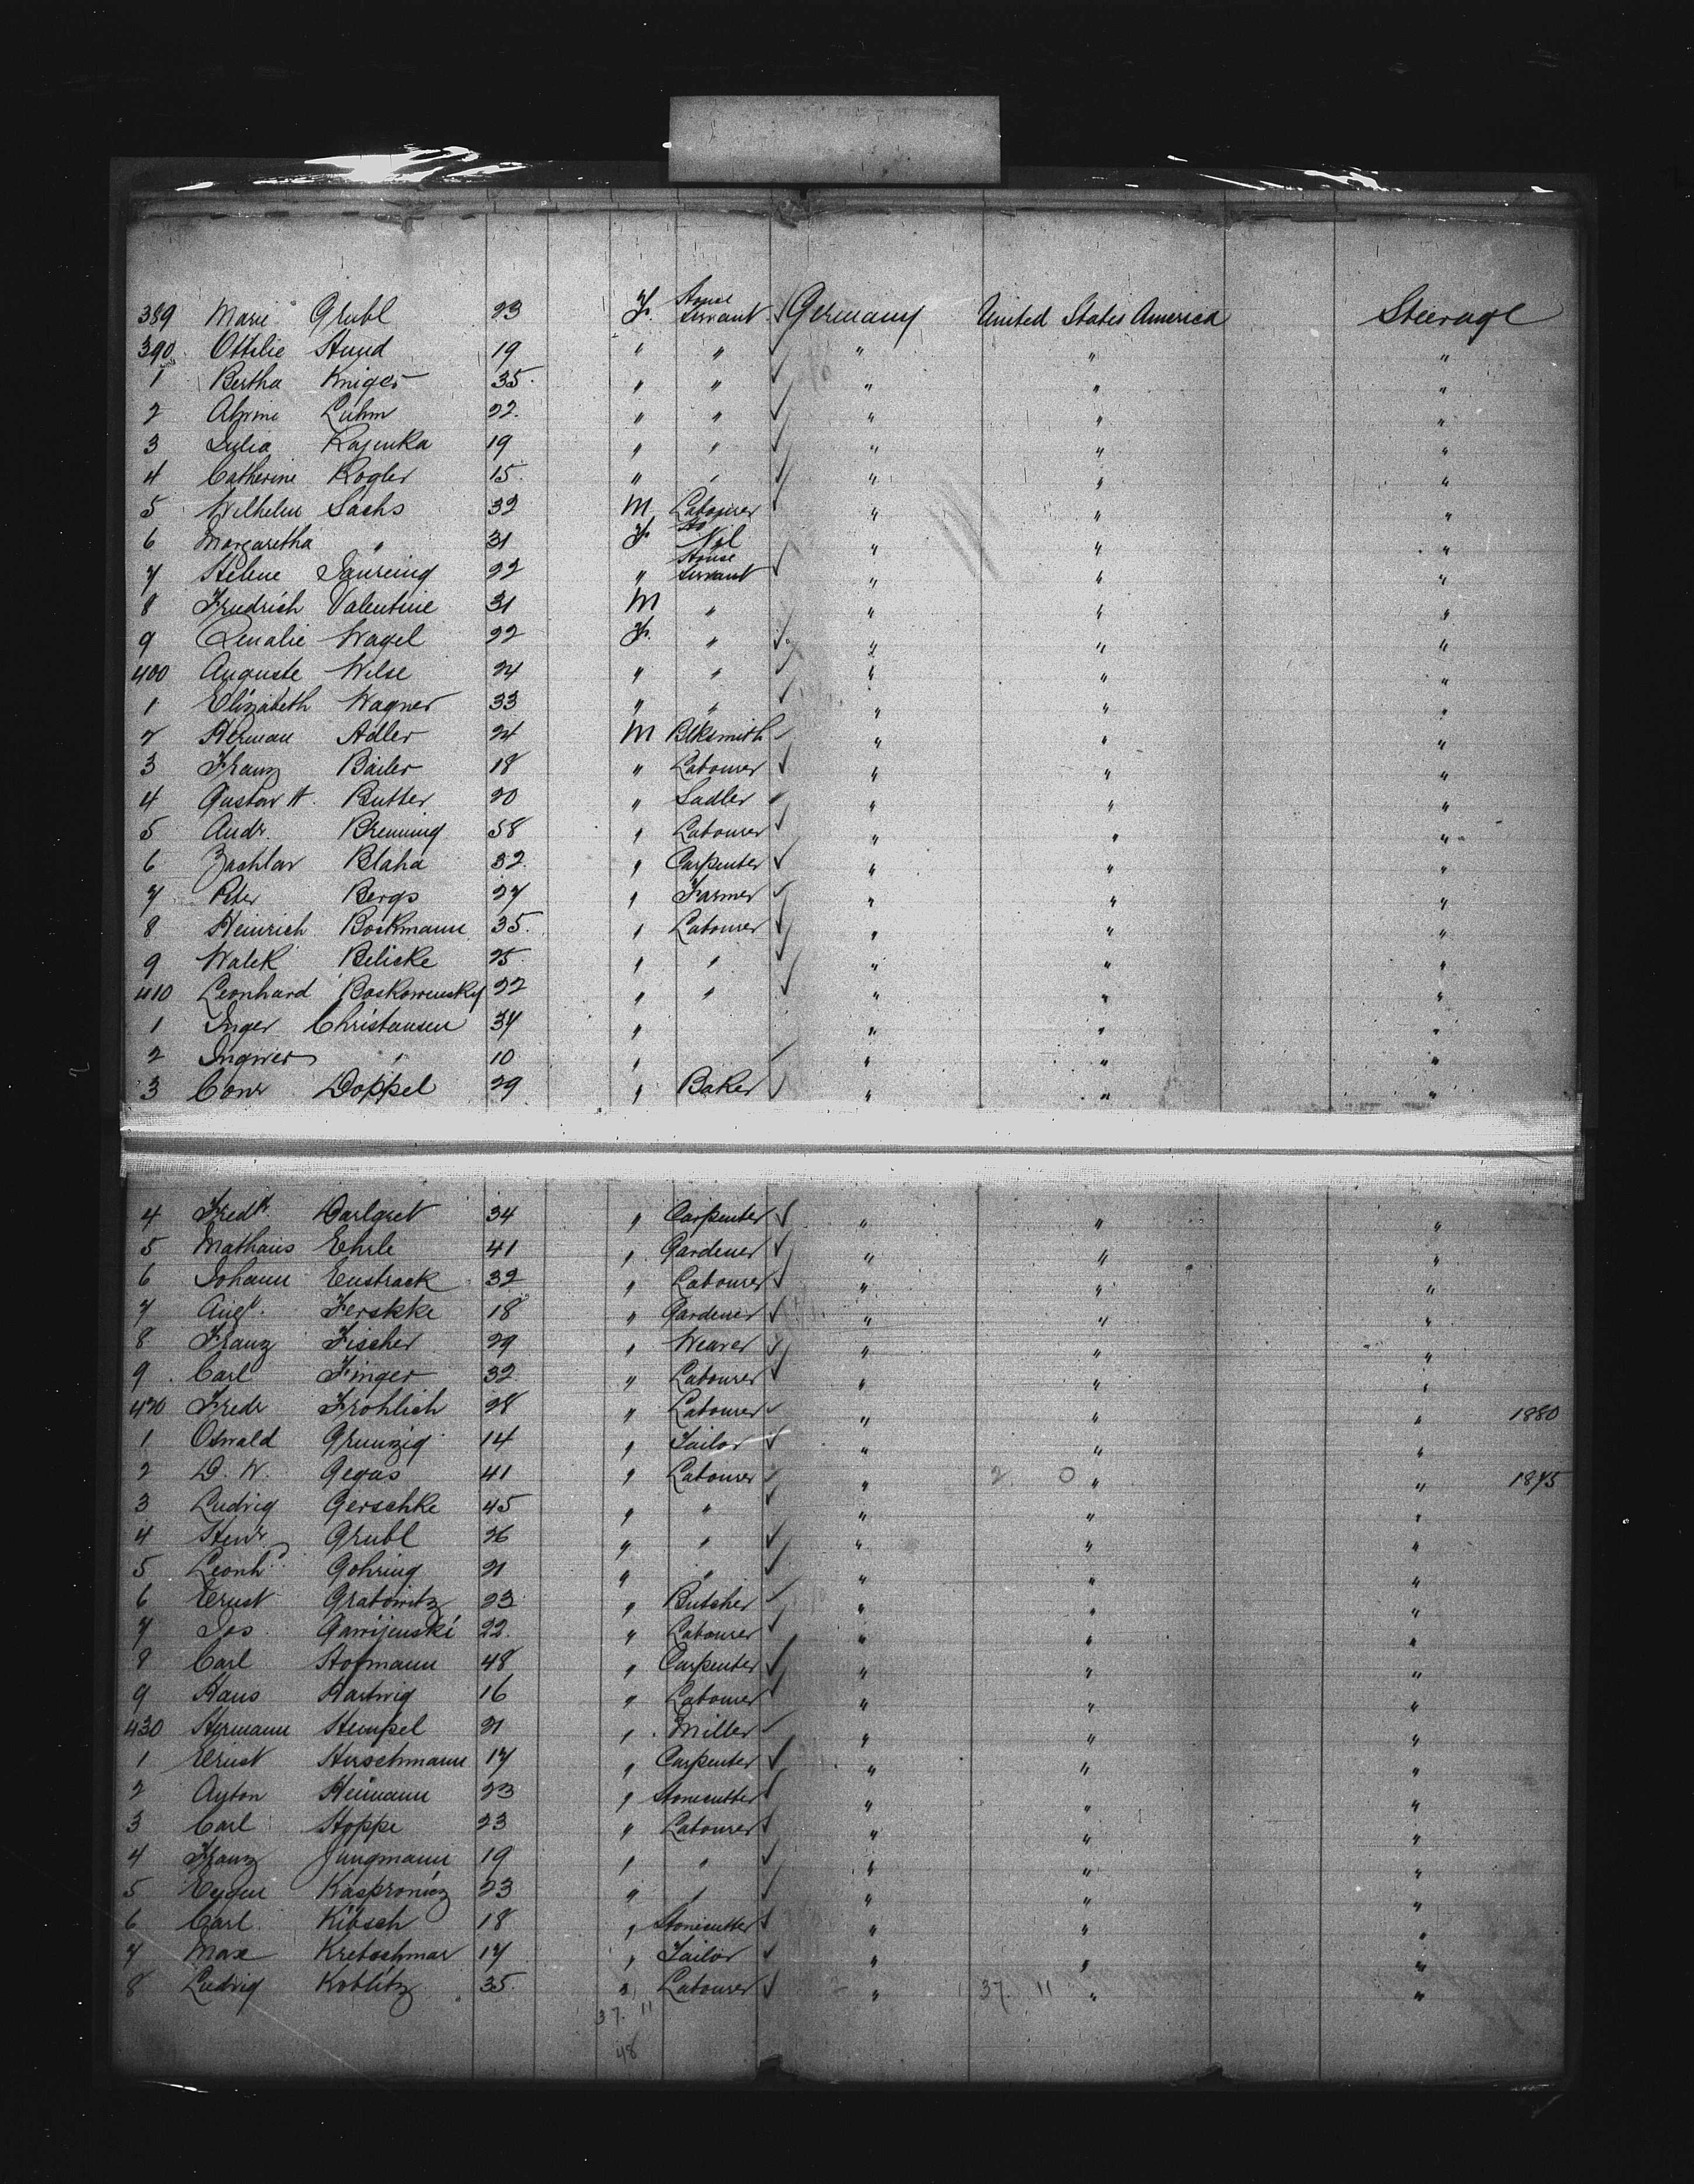 389 Marie Grubl 23 F. House Servant Germany United States America Steerage
390 Ottilie Hund 19 " " " " "
1 Bertha Kniges 35 " " " " "
2 Luhm 22 " " " " "
3 Julia Kajenka 19 " " " " "
4 Catherine Kogler 15 " " " " "
5 Wilhelm Sachs 32 M Labourer " " "
6 Margaretha " 31 F. Nil " " "
7 Helene 22 " House Servant " " "
8 Friedrich Valentine 31 M " " " "
9 Wagel 22 F. " " " "
400 Auguste Wilse 24 " " " " "
1 Elisabeth Wagner 33 " " " " "
2 Herman Adler 24 M Blksmith " " "
3 Franz Bailer 18 " Labourer " " "
4 Gustav H. Butter 20 " Sadler " " "
5 Andr. Brenning 58 " Labourer " " "
6 Blaha 32 " Carpenter " " "
7 Peter Bergs 27 " Farmer " " "
8 Heinrich Bockmann 35 " Labourer " " "
9 Walek Belicke 25 " " " " "
410 Leonhard Boskowensky 22 " " " " "
1 Inger Christansen 34 " " " "
2 Ingwer " 10 " " " "
3 Conr Doppel 29 " Baker " " "
4 Fredk Darlgret 34 " Carpenter " " "
5 Mathaus Ehrle 41 " Gardener " " "
6 Johann Eustrack 32 " Labourer " " "
7 Augt. Ferskke 18 " Gardener " " "
8 Franz Fischer 29 " Weaver " " "
9 Carl Finger 32 " Labourer " " "
420 Fredr Frohlich 28 " Labourer " " " 1880
1 Oswald Grunzig 14 " Tailor " " "
2 D. W. Gegas 41 " Labourer " 2 0 " " 1875
3 Ludvig Gerschke 45 " " " " "
4 Henr Grubl 26 " " " " "
5 Leonhd Gohring 21 " " " " "
6 Ernst Grabowitz 23 " Butcher " " "
7 Jos Gawijenski 22 " Labourer " " "
8 Carl Hofmann 48 " Carpenter " " "
9 Hans Hartwig 16 " Labourer " " "
430 Hermann Hempel 21 " Miller " " "
1 Ernst Herschmann 17 " Carpenter " " "
2 Anton Heimann 23 " Stonecutter " " "
3 Carl Hoppe 23 " Labourer " " "
4 Franz Jungmann 19 " " " " "
5 Eugen Kaspronicz 23 " " " " "
6 Carl Kibsch 18 " Stonecutter " " "
7 Max Kretschmar 17 " Tailor " " "
8 Ludvig Koblitz 35 " Labourer " 37. 11 " "
37. 11
48